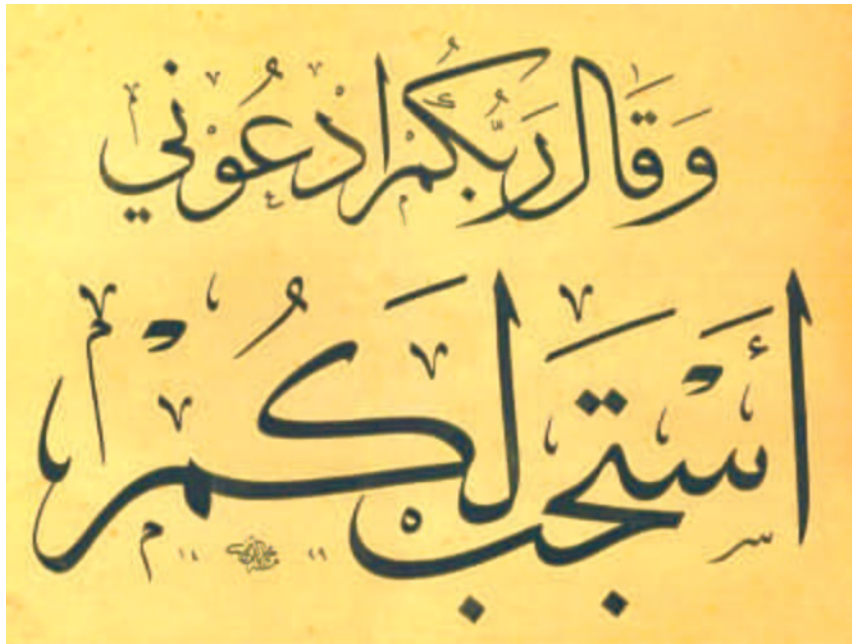 وَقَالَ رَبُّكُمُ ادْعُوْنِي
أَسْتَجِبْ لَكُمْ